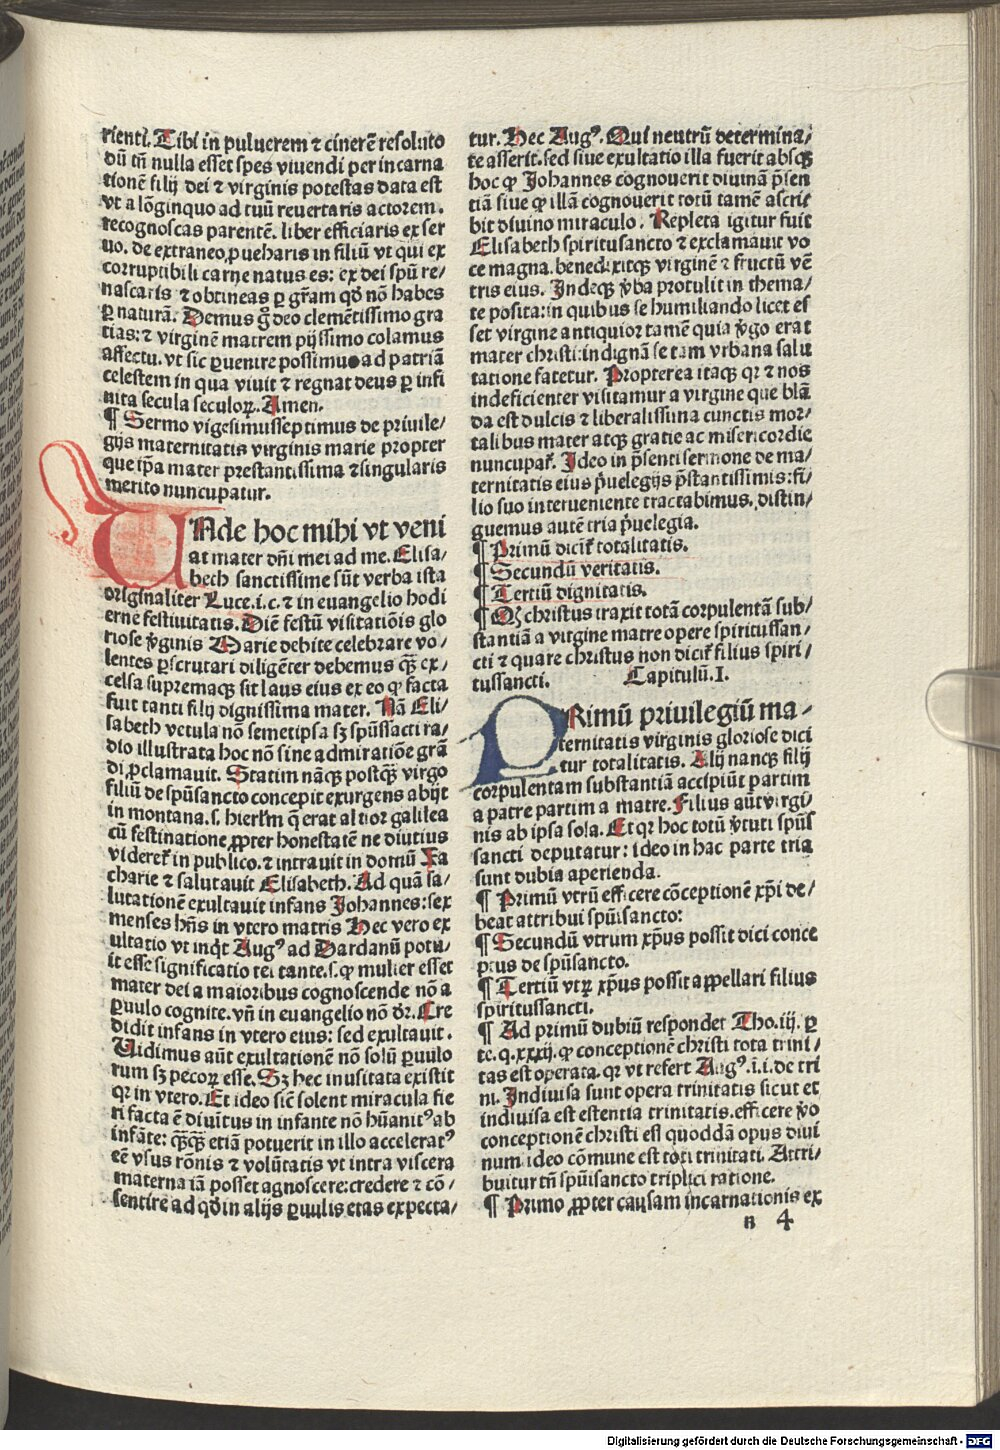 rienti. Tibi in puluerem ⁊ cinerē resoluto
dū tñ nulla esset spes viuendi per incarna
tionē filij dei ⁊ virginis potestas data est
vt a lōginquo ad tuū reuertaris actorem.
recognoscas parentē. liber efficiaris ex ser
uo. de extraneo ꝓueharis in filiū vt qui ex
corruptibili carne natus es: ex dei spū re/
nascaris ⁊ obtineas ꝑ gr̄am qd̓ nō habes
ꝑ naturā. Demus g̊ deo clemētissimo gra
tias: ⁊ virginē matrem pijssimo colamus
affectu. vt sic ꝑuenire possimus ad patriā
celestem in qua viuit ⁊ regnat deus ꝑ infi
nita secula seculoꝝ. Amen.
¶ Sermo vigesimusseptimus de priuile/
gijs maternitatis virginis marie propter
que ip̄a mater prestantissima ⁊ singularis
merito nuncupatur.
UNde hoc mihi vt veni
at mater dn̄i mei ad me. Elisa/
beth sanctissime sūt verba ista
originaliter Luce. i. c. ⁊ in euangelio hodi
erne festiuitatis. Diē festū visitatiōis glo
riose v̓ginis Marie debite celebrare vo/
lentes ꝑscrutari diligēter debemus qȝ̄ ex/
celsa supremaqȝ sit laus eius ex eo ꝙ facta
fuit tanti filij dignissima mater. Nā Eli/
sabeth vetula nō semetipsa sȝ spūssācti ra/
dio illustrata hoc nō sine admiratiōe grā
di ꝓclamauit. Statim nāqȝ postqȝ̄ virgo
filiū de spūsancto concepit exurgens abijt
in montana. s. hierl̄m q̄ erat altior galilea
cū festinatione ꝓpter honestatē ne diutius
videret᷑ in publico. ⁊ intrauit in domū Za
charie ⁊ salutauit Elisabeth. Ad quā sa/
lutationē exultauit infans Johannes: sex
menses hn̄s in vtero matris Hec vero ex
ultatio vt inq̇t Augꝰ ad Dardanū potu/
it esse significatio rei tante. s. ꝙ mulier esset
mater dei a maioribus cognoscende nō a
ꝑuulo cognite. vn̄ in euangelio nō d̓r. Cre
didit infans in vtero eius: sed exultauit.
Uidimus aūt exultationē nō solū ꝑuulo
rum sȝ pecoꝝ esse. Sȝ hec inusitata existit
qꝛ in vtero. Et ideo sic̄ solent miracula fie
ri facta ē diuīitus in infante nō hūanitꝰ ab
infāte: qȝ̄qȝ̄ etiā potuerit in illo acceleratꝰ
eē vsus rōnis ⁊ volūtatis vt intra viscera
materna iā posset agnoscere: credere ⁊ cō/
sentire ad qd̓ in alijs ꝑuulis etas expecta/
tur. Hec Augꝰ. Qui neutrū determina/
te asserit. sed siue exultatio illa fuerit absqȝ
hoc ꝙ Johannes cognouerit diuinā p̄sen
tiā siue ꝙ illā cognouerit totū tamē ascri/
bit diuino miraculo. Repleta igitur fuit
Elisabeth spiritusancto ⁊ exclamauit vo
ce magna. benedixitqȝ virginē ⁊ fructū vē
tris eius. Indeqȝ v̓ba protulit in thema/
te posita: in quibus se humiliando licet es
set virgine antiquior tamē quia v̓go erat
mater christi: indignā se tam vrbana salu
tatione fatetur. Propterea itaqȝ qꝛ ⁊ nos
indeficienter visitamur a virgine que blā/
da est dulcis ⁊ liberalissima cunctis mor/
talibus mater atqȝ gratie ac misericordie
nuncupat᷑. Ideo in p̄senti sermone de ma/
ternitatis eius p̓uelegijs p̄stantissimis: fi/
lio suo interueniente tractabimus. distin/
guemus autē tria p̓uelegia.
¶ Primū dicit᷑ totalitatis.
¶ Secundū veritatis.
¶ Tertiū dignitatis.
¶ Qȝ christus traxit totā corpulentā sub/
stantiā a virgine matre opere spiritussan/
cti ⁊ quare christus non dicit᷑ filius spiri/
tussancti. Capitulū. I.
PRimū priuilegiū ma-
ternitatis virginis gloriose dici
tur totalitatis. Alij nanqȝ filij
corpulentam substantiā accipiūt partim
a patre partim a matre. Filius aūt virgi/
nis ab ipsa sola. Et qꝛ hoc totū v̓tuti spūs̄
sancti deputatur: ideo in hac parte tria
sunt dubia aperienda.
¶ Primū vtrū efficere cōceptionē xp̄i de/
beat attribui spūisancto:
¶ Secundū vtrum xp̄us possit dici conce
ptus de spūsancto.
¶ Tertiū vtꝝ xp̄us possit appellari filius
spiritussancti.
¶ Ad primū dubiū respondet Tho. iij. ꝑ
te. q. xxxij. ꝙ conceptionē christi tota trini/
tas est operata. qꝛ vt refert Augꝰ. i. i. de tri
ni. Indiuisa sunt opera trinitatis sicut et
indiuisa est essentia trinitatis. efficere v̓o
conceptionē christi est quoddā opus diui
num ideo cōmune est toti trinitati. Attri/
buitur tñ spūisancto triplici ratione.
¶ Primo ꝓpter causam incarnationis ex
n 4
Digitalisierung gefördert durch die Deutsche Forschungsgemeinschaft - DFG